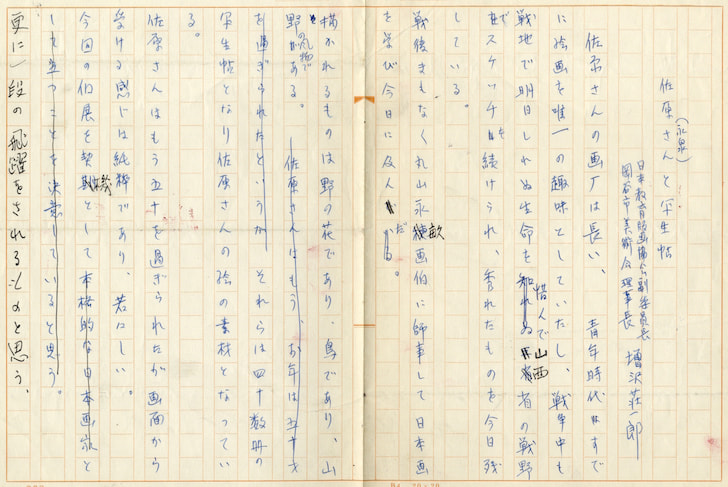 佐原(永泉)さんと写生帖
日本教育版画協会副委員長
岡谷市美術会理事長 増沢荘一郎
佐原さんの画厂は長い、青年時代はすで
に絵画を唯一の趣味としていたし、戦争中も
戦地で明日しれぬ生命を惜んで山西省の戦野
でスケッチを続けられ、秀れたものを今日残
している。
戦後まもなく丸山永畝画伯に師事して日本画
を学び今日に及んだ。
描かれるものは野の花であり、鳥であり、山
野の風物である。佐原さんはもう、お年は五十才
を過ぎられたというが それらは四十数冊の
写生帖となり佐原さんの絵の素材となってい
る。
佐原さんはもう五十を過ぎられたが画面から
受ける感じは純粋であり、若にしい。
今回の個展を契機として本格的な日本画家と
しても立つことを決意していると思う。
更に一段の飛躍をされるものと思う、